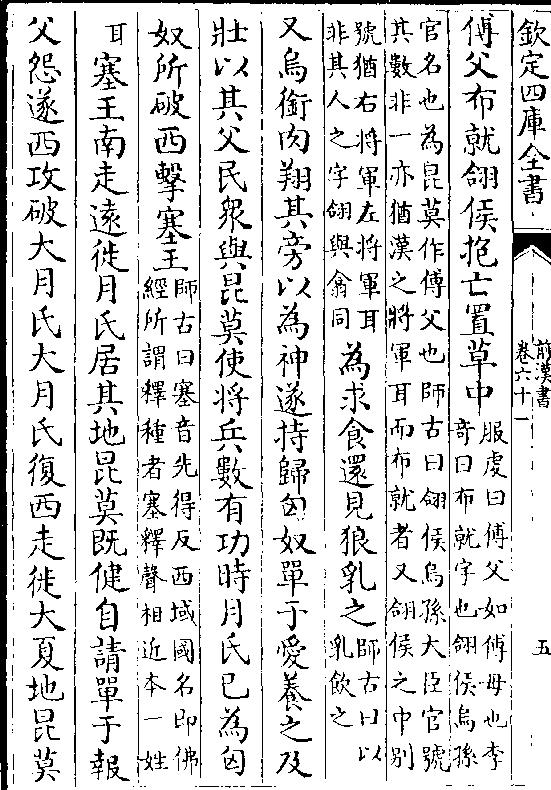 欽定四庫全書
前漢書
卷六十一
五
傅父布就翖侯抱亡置草中
服虔曰傅父如傅母也李
奇曰布就字也翖侯烏孫
官名也為昆莫作傅父也師古曰翖侯烏孫大臣官號
其數非一亦猶漢之將軍耳而布就者又翖侯之中别
號猶右將軍左將軍耳
非其人之字翖與翕同
為求食還見狼乳之
師古曰以
乳飲之
又烏銜肉翔其旁以為神遂持歸匈奴單于愛養之及
壯以其父民衆與昆莫使將兵數有功時月氏已為匈
奴所破西擊塞王
師古曰塞音先得反西域國名即佛
經所謂釋種者塞釋聲相近本一姓
耳
塞王南走遠徙月氏居其地昆莫既健自請單于報
父怨遂西攻破大月氏大月氏復西走徙大夏地昆莫